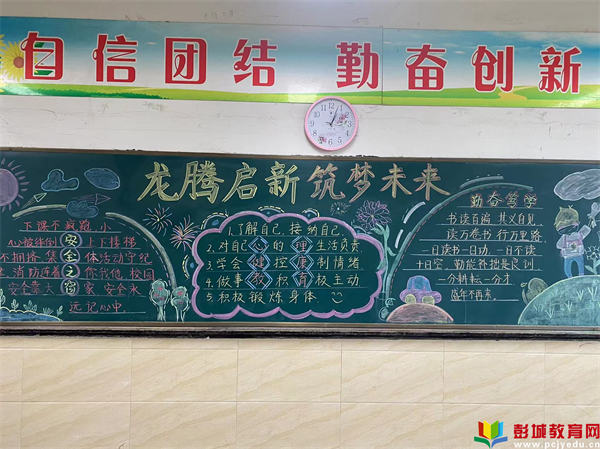 自信团结 勤奋创新
龙腾启新 筑梦未来
下课不疯跑,小
心被绊倒 安 上下楼梯
不拥挤 集 全 体活动守纪
消防连着 之 你我他 校园
安全靠大 窗 家 安全永
远记心中.
1.了解自己,接纳自己
2.对自己心的理生活负责
3.学会健控康制情绪
4.做事教积育极主动
5.积极锻炼身体
勤奋笃学
书读百遍,其义自见
读万卷书 行万里路
一日读书一日功,一日不读
十日空,勤能补拙是良训
一分耕耘一分才
盛年不再来,
彭城教育网
www.pcjyedu.cn